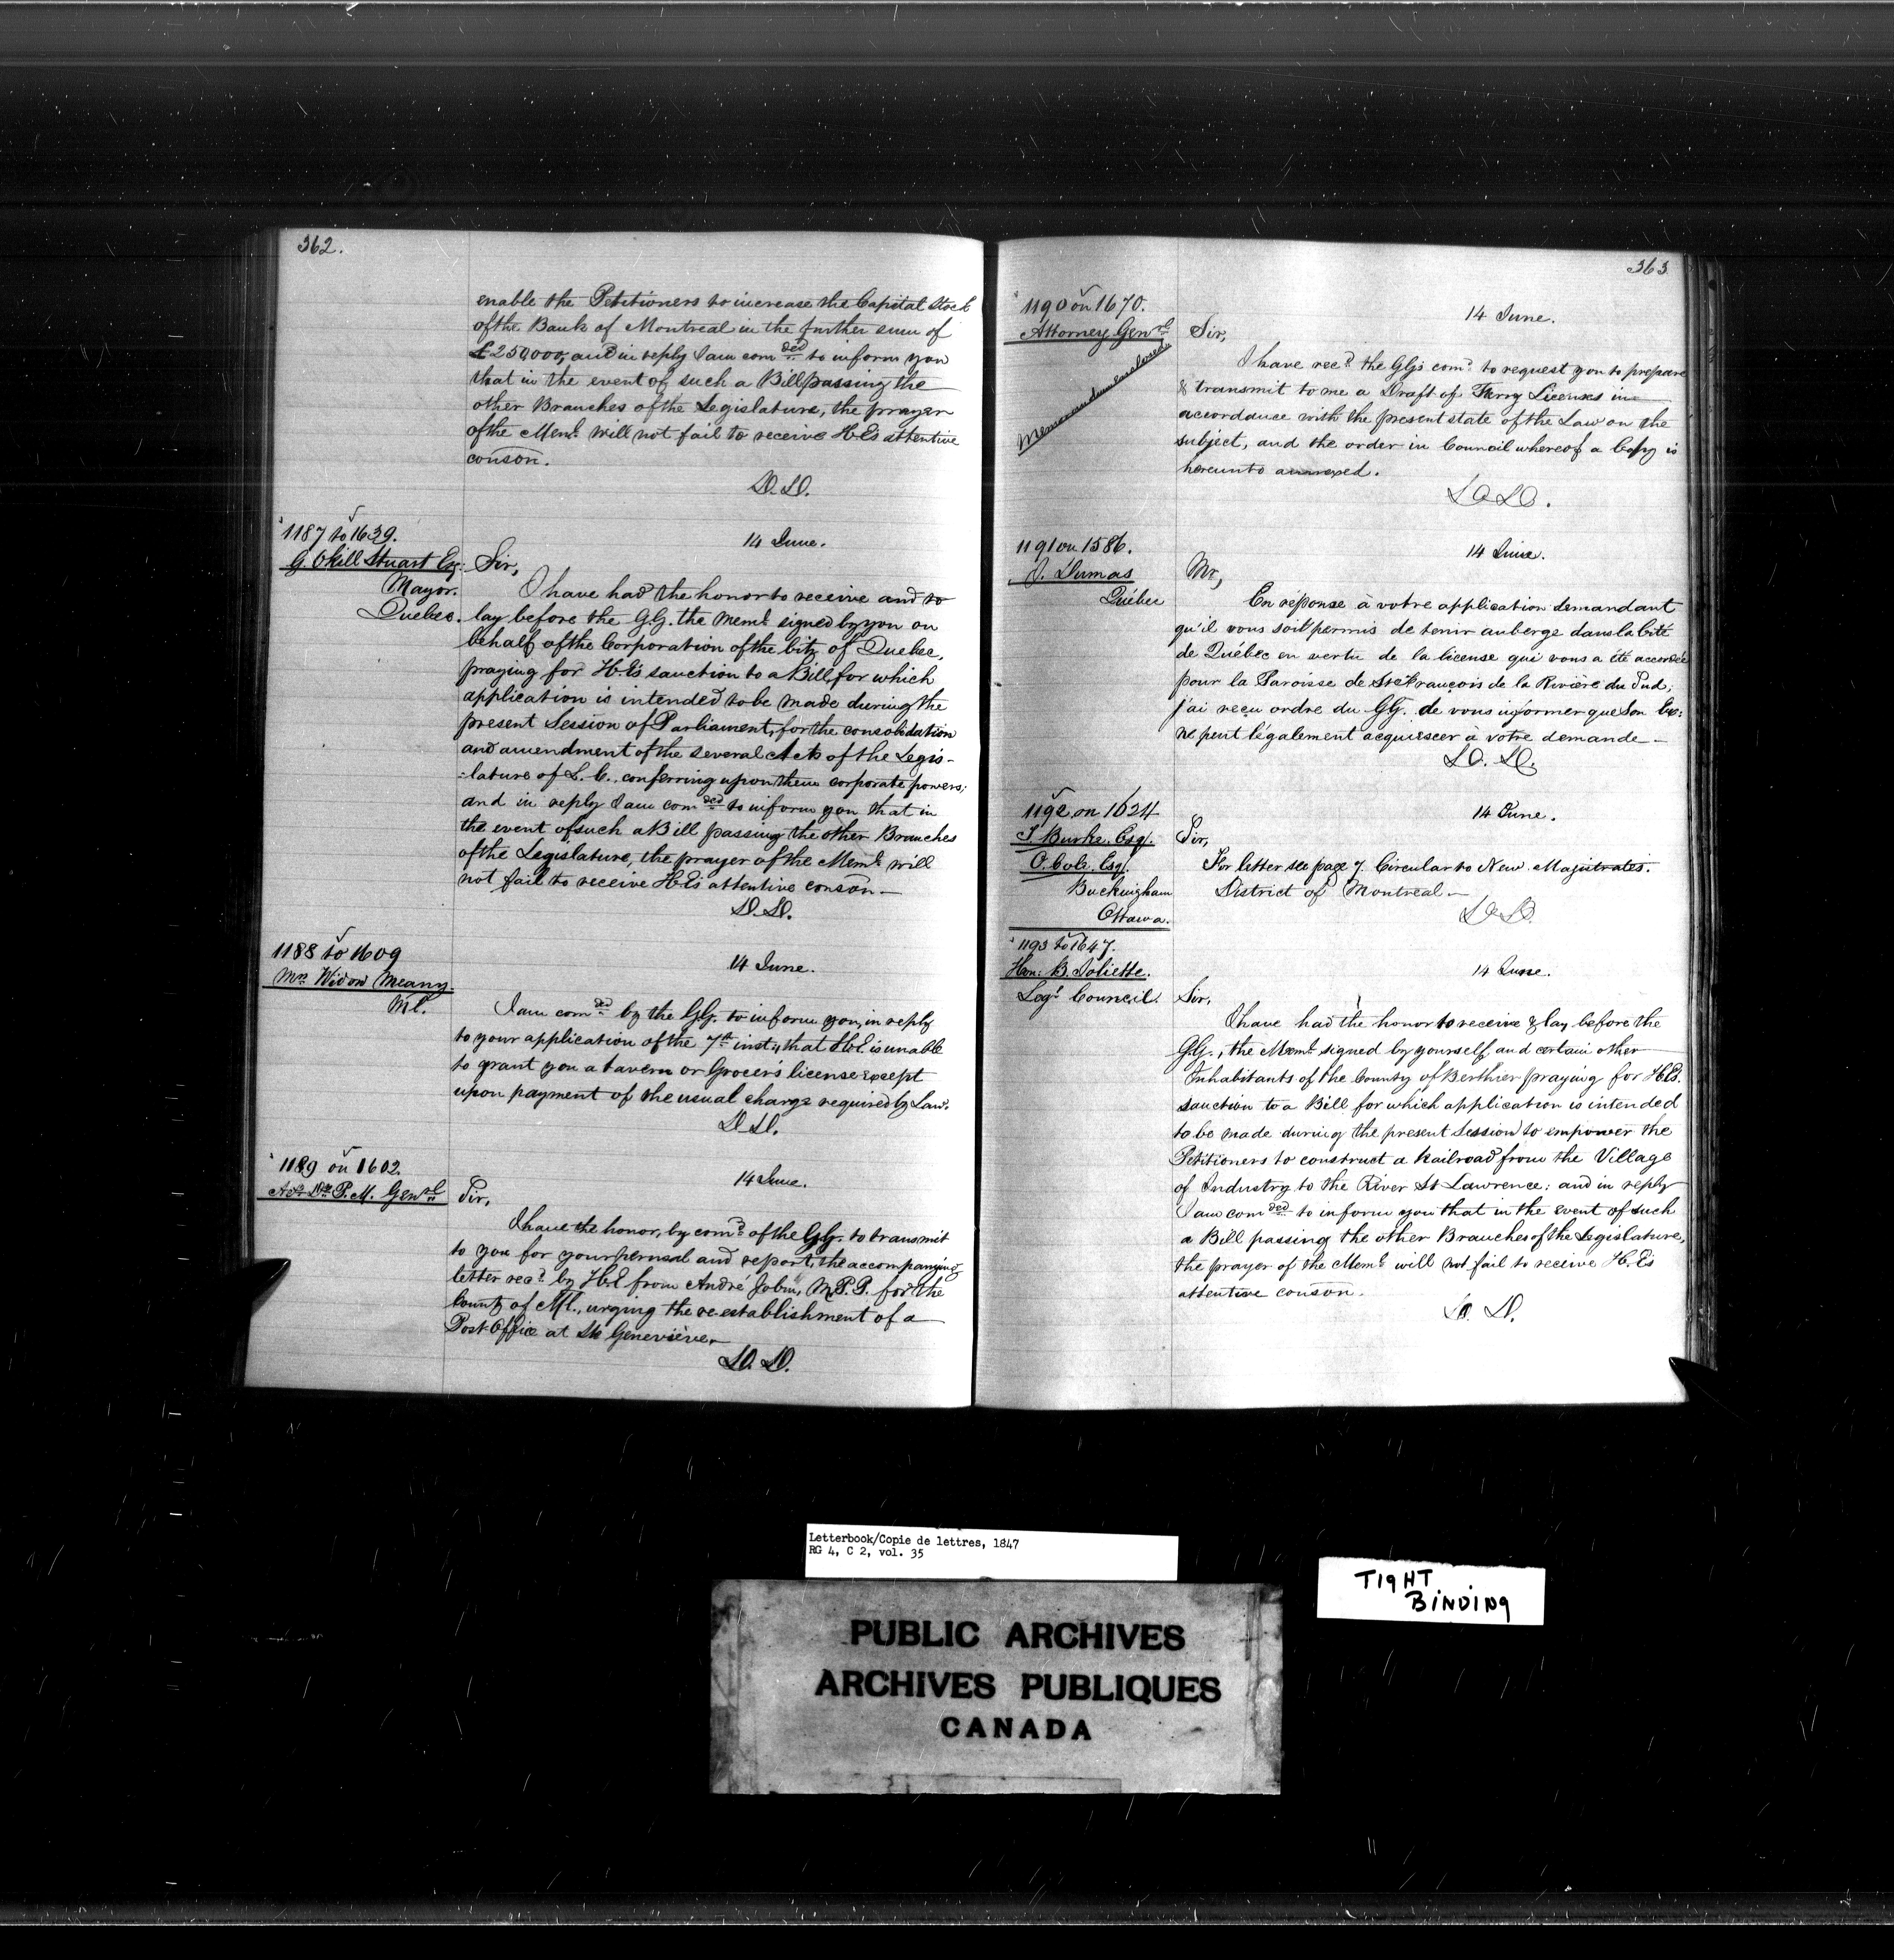 362.
enable the Petitioners to increase the Capital Stock
of the Bank of Montreal in the further sum of
£250,000, and in reply I am comded to inform you
that in the event of such a Bill passing the
other Branches of the Legislature, the prayer
of the Meml. will not fail to receive H.E's attentive
conson.
D.D.
1187 to 1639.
G. Okill Stuart Esq.
Mayor.
Quebec.
14 June.
Sir,
I have had the honor to receive and to
lay before the G.G. the Meml. signed by you on
behalf of the Corporation of the City of Quebec,
praying for H.E's sanction to a Bill, for which
application is intended to be made during the
present Session of Parliament, for the consolidation
and amendment of the several Acts of the Legis-
-lature of L.C., conferring upon them corporate powers;
and in reply I am comded to inform you that in
the event of such a Bill passing the other Branches
of the Legislature, the prayer of the Meml. will
not fail to receive H.E's attentive conson—
D.D.
1188 to 1609
Mrs. Widow Meany.
Ml.
14 June.
I am comded by the G.G. to inform you, in reply
to your application of the 7th inst., that H.E. is unable
to grant you a tavern or Grocer's license except
upon payment of the usual charge required by Law.
D.D.
1189 on 1602.
Actg Dy P.M. Genral
14 June.
Sir,
I have the honor, by comd. of the G.G. to transmit
to you for your perusal and report, the accompanying
letter recd. by H.E. from André Jobin, M.P.P. for the
County of Ml., urging the re-establishment of a
Post-Office at Ste Geneviève.—
D.D.
363
1190 on 1670.
Attorney Genral
Memorandum enclosed
14 June.
Sir,
I have recd. the G.G's comd. to request you to prepare
& transmit to me a Draft of Ferry Licenses in
accordance with the present state of the Law on the
subject, and the order in Council whereof a Copy is
hereunto annexed.
D.D.
1191 on 1586.
J. Dumas
Québec
14 June.
Mr,
En réponse à votre application demandant
qu'il vous soit permis de tenir auberge dans la Cité
de Québec en vertu de la license qui vous a été accordée
pour la Paroisse de St François de la Rivière du Sud;
j'ai reçu ordre du G.G. de vous informer que Son Exc:
ne peut légalement acquiescer à votre demande—
D.D.
1192 on 1624
T. Burke, Esq.
O. Cole, Esq.
Buckingham
Ottawa.
14 June.
Sir,
For letter see page 7. Circular to New Magistrates.
District of Montreal—
D.D.
1193 to 1647.
Hon: B. Joliette.
Legs. Council.
14 June.
Sir,
I have had the honor to receive & lay before the
G.G., the Meml. signed by yourself and certain other
Inhabitants of the County of Berthier praying for H.E's.
sanction to a Bill for which application is intended
to be made during the present Session to empower the
Petitioners to construct a Railroad from the Village
of Industry to the River St Lawrence: and in reply
I am comded to inform you that in the event of such
a Bill passing the other Branches of the Legislature,
the prayer of the Meml. will not fail to receive H.E's
attentive conson.
D.D.
Letterbook/Copie de lettres, 1847
RG 4, C 2, vol. 35
TIGHT
BINDING
PUBLIC ARCHIVES
ARCHIVES PUBLIQUES
CANADA